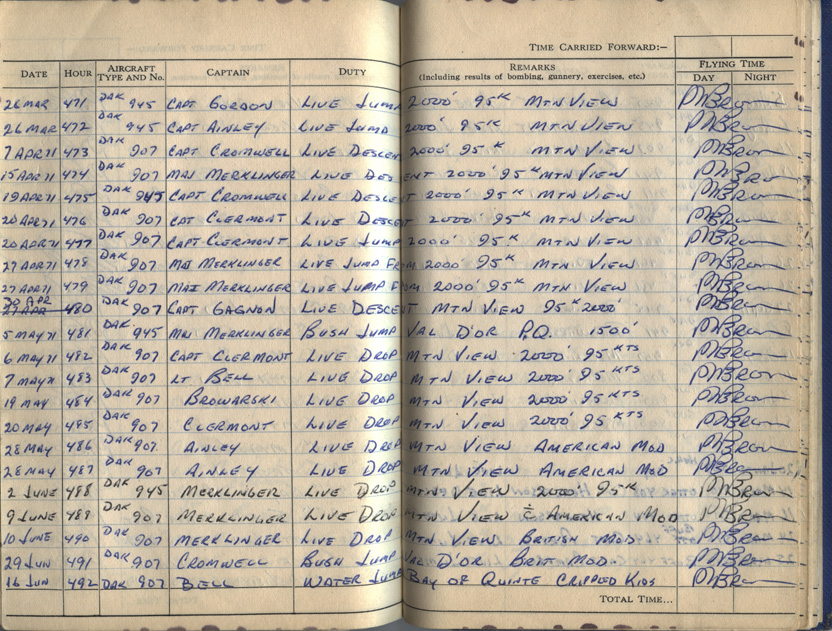 TIME CARRIED FORWARD:—
DATE HOUR AIRCRAFT TYPE AND NO. CAPTAIN DUTY REMARKS (Including results of bombing, gunnery, exercises, etc.) FLYING TIME DAY NIGHT
26 MAR 471 DAK 945 CAPT GORDON LIVE JUMP 2000' 95K MTN VIEW PMBrown
26 MAR 472 DAK 945 CAPT AINLEY LIVE JUMP 2000' 95K MTN VIEW PMBrown
7 APR 71 473 DAK 907 CAPT CROMWELL LIVE DESCENT 2000' 95K MTN VIEW PMBrown
15 APR 71 474 DAK 907 MAJ MERKLINGER LIVE DESCENT 2000' 95K MTN VIEW PMBrown
19 APR 71 475 DAK 945 CAPT CROMWELL LIVE DESCENT 2000' 95K MTN VIEW PMBrown
20 APR 71 476 DAK 907 CAPT CLERMONT LIVE DESCENT 2000' 95K MTN VIEW PMBrown
20 APR 71 477 DAK 907 CAPT CLERMONT LIVE JUMP 2000' 95K MTN VIEW PMBrown
27 APR 71 478 DAK 907 MAJ MERKLINGER LIVE JUMP FROM 2000' 95K MTN VIEW PMBrown
27 APR 71 479 DAK 907 MAJ MERKLINGER LIVE JUMP FROM 2000' 95K MTN VIEW PMBrown
30 APR 27 APR 480 DAK 907 CAPT GAGNON LIVE DESCENT MTN VIEW 95K 2000' PMBrown
5 MAY 71 481 DAK 945 MAJ MERKLINGER BUSH JUMP VAL D'OR P.Q. 1500' PMBrown
6 MAY 71 482 DAK 907 CAPT CLERMONT LIVE DROP MTN VIEW 2000' 95 KTS PMBrown
7 MAY 71 483 DAK 907 LT BELL LIVE DROP MTN VIEW 2000' 95 KTS PMBrown
19 MAY 484 DAK 907 BROWARSKI LIVE DROP MTN VIEW 2000' 95 KTS PMBrown
20 MAY 485 DAK 907 CLERMONT LIVE DROP MTN VIEW 2000' 95 KTS PMBrown
28 MAY 486 DAK 907 AINLEY LIVE DROP MTN VIEW AMERICAN MOD PMBrown
28 MAY 487 DAK 907 AINLEY LIVE DROP MTN VIEW AMERICAN MOD PMBrown
2 JUNE 488 DAK 945 MERKLINGER LIVE DROP MTN VIEW 2000' 95K PMBrown
9 JUNE 489 DAK 907 MERKLINGER LIVE DROP MTN VIEW AMERICAN MOD PMBrown
10 JUNE 490 DAK 907 MERKLINGER LIVE DROP MTN VIEW BRITISH MOD PMBrown
29 JUN 491 DAK 907 CROMWELL BUSH JUMP VAL D'OR BRIT MOD. PMBrown
16 JUN 492 DAK 907 BELL WATER JUMP BAY OF QUINTE CRIPPLED KIDS PMBrown
TOTAL TIME...